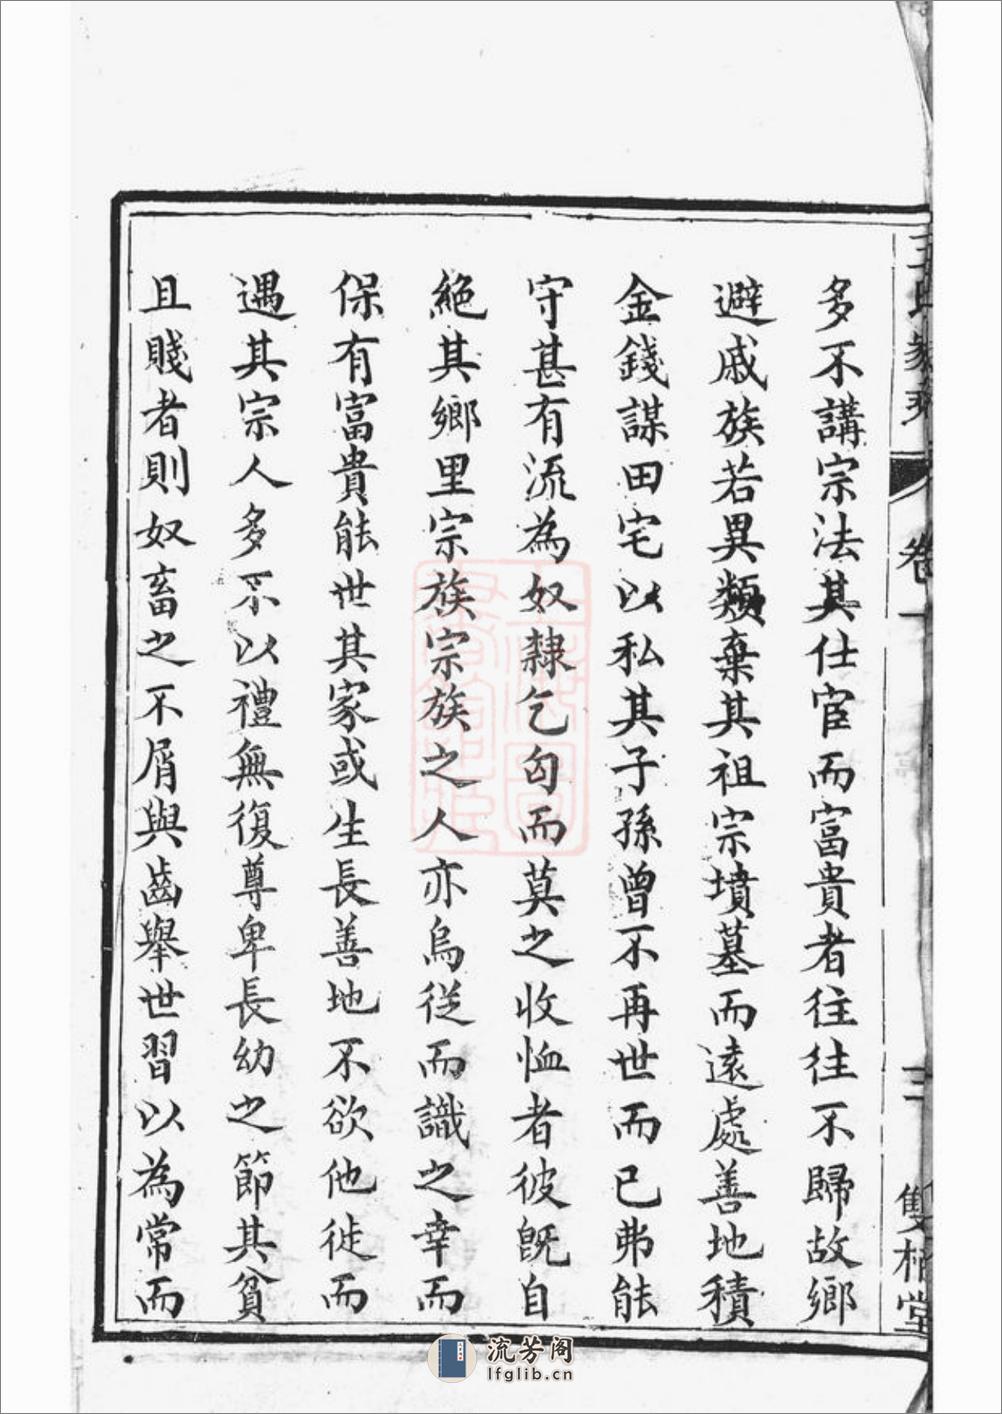 多不講宗法其仕宦而富貴者往往不歸故鄉
避戚族若異類棄其祖宗墳墓而遠處善地積
金錢謀田宅以私其子孫曾不再世而已弗能
守甚有流為奴隸乞匄而莫之收恤者彼既自
絕其鄉里宗族宗族之人亦烏從而識之幸而
保有富貴能世其家或生長善地不欲他徙而
遇其宗人多不以禮無復尊卑長幼之節其貧
且賤者則奴畜之不屑與齒舉世習以為常而
流芳阁
lfglib.cn